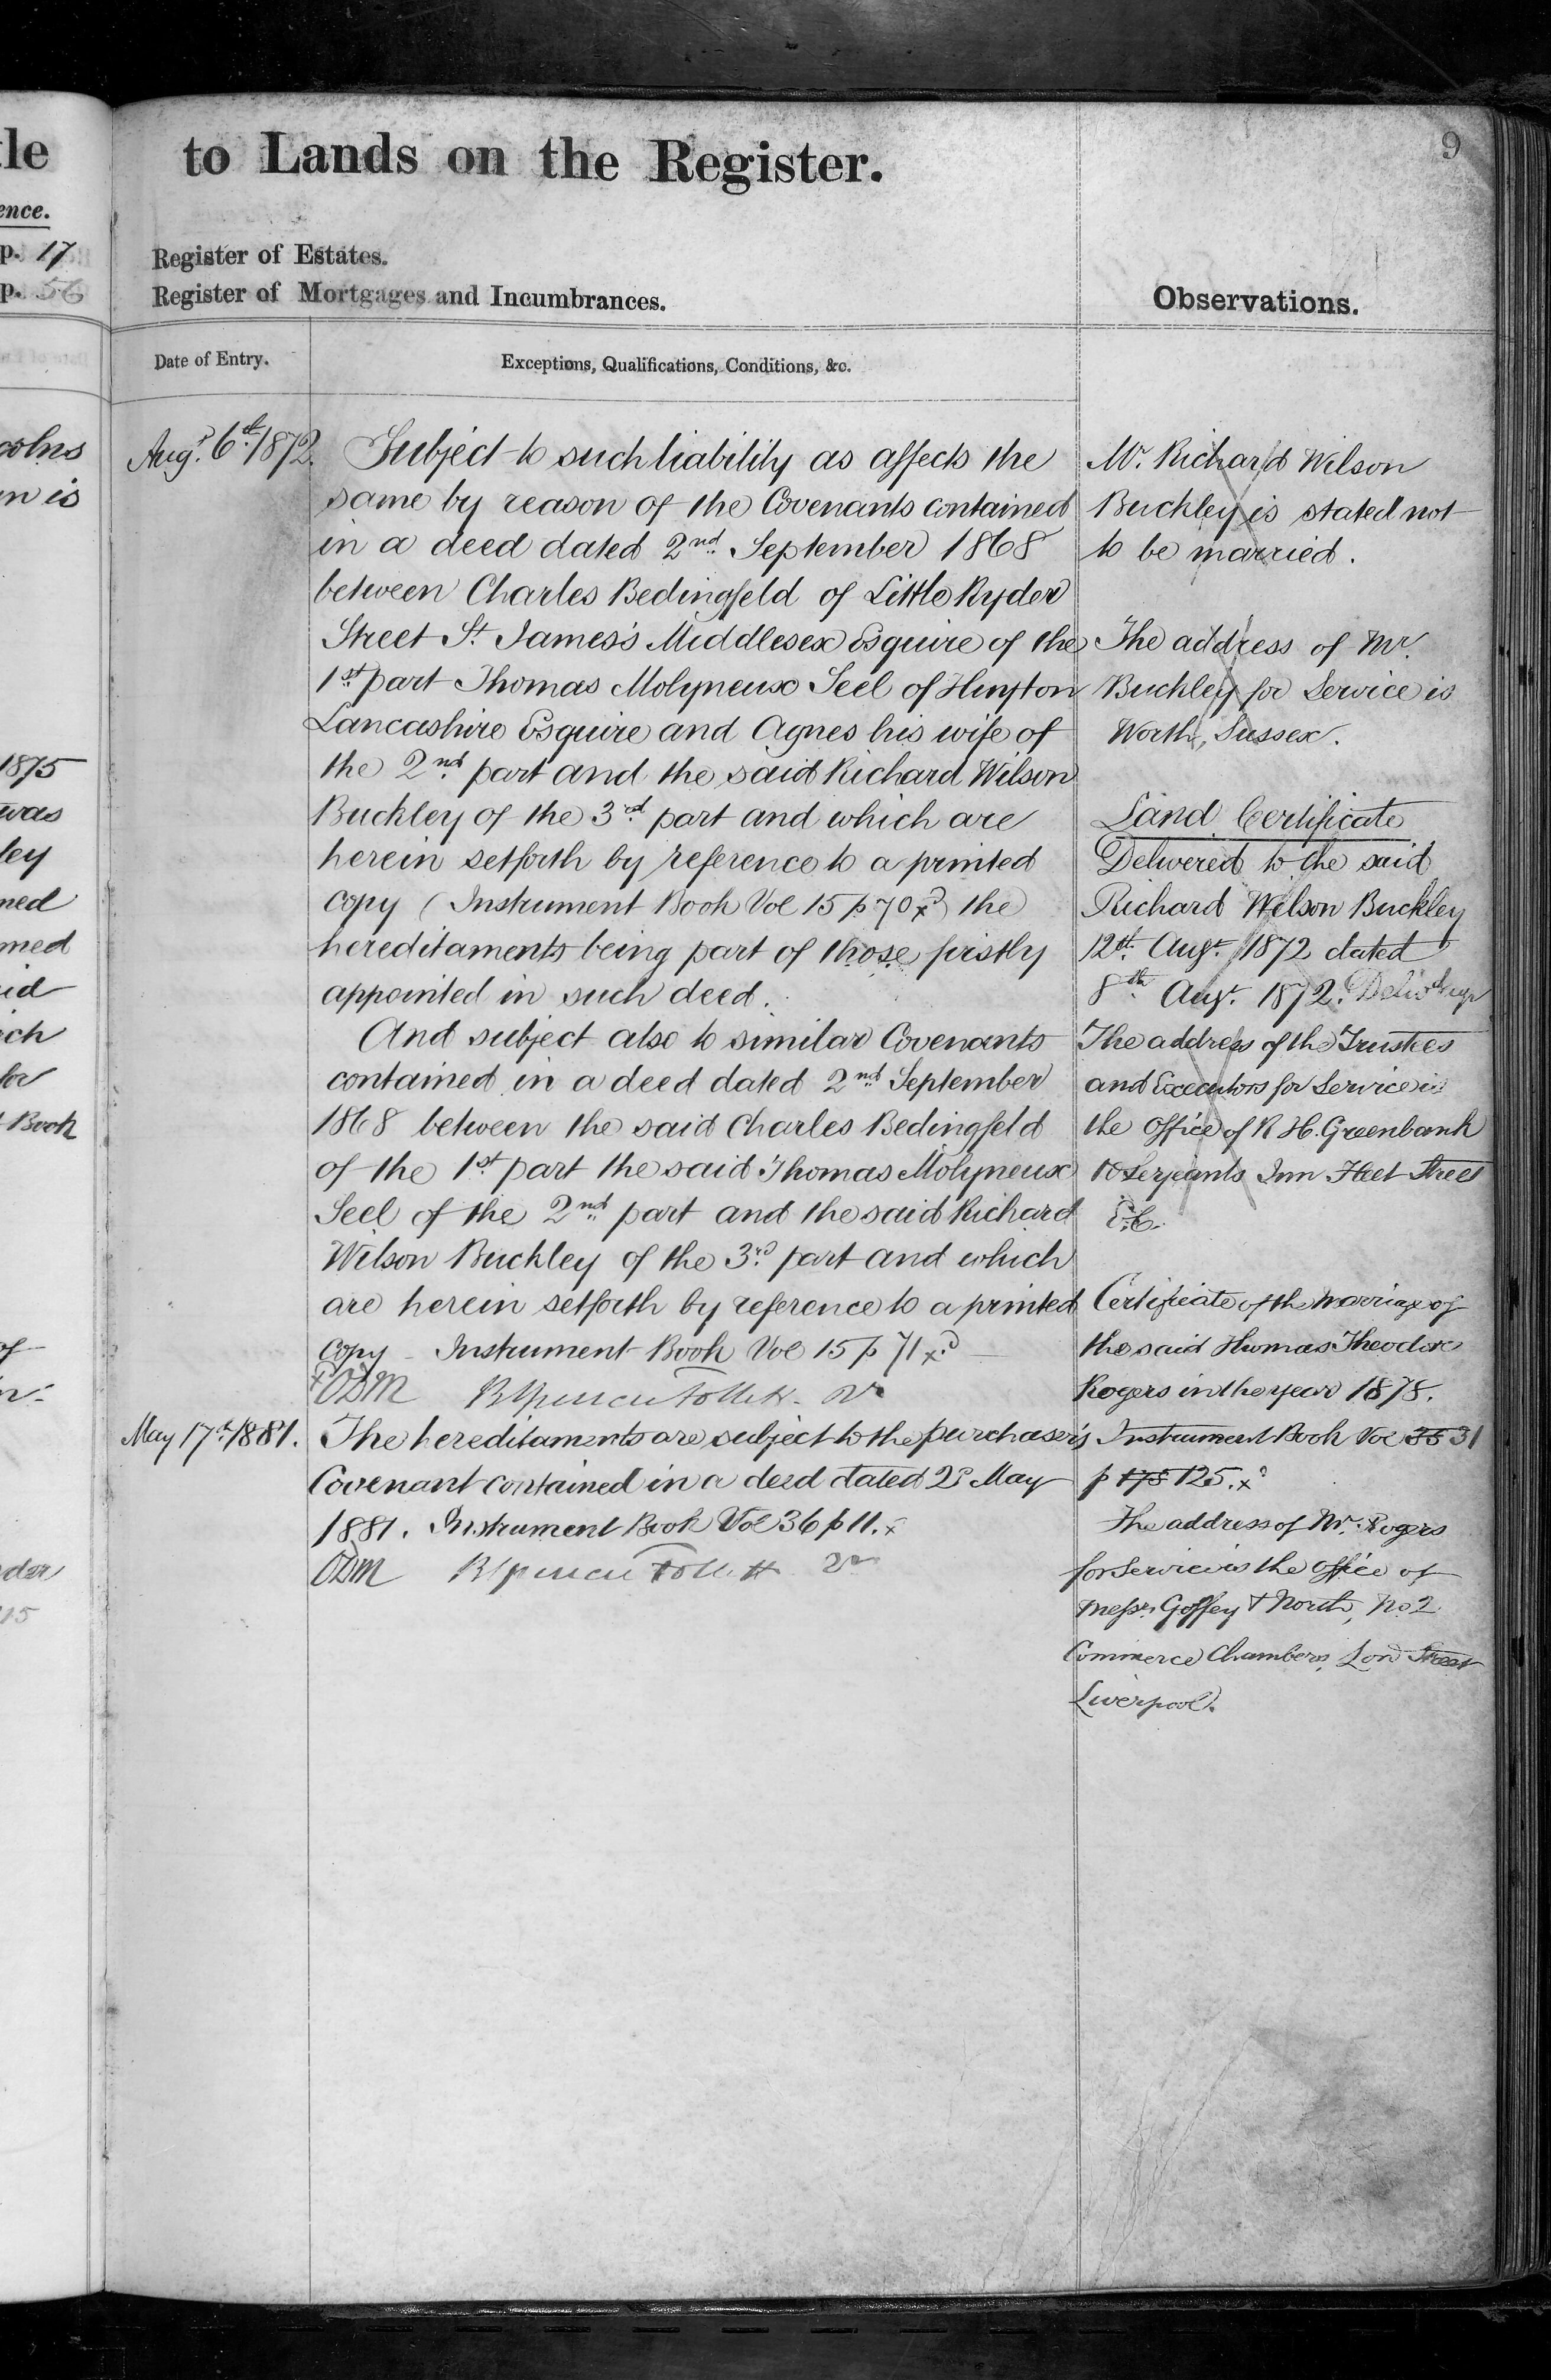 tle
ence.
p. 17
p. 56
colns
n is
1875
was
ley
ned
med
id
ich
for
Book
of
15
to Lands on the Register.
9
Register of Estates.
Register of Mortgages and Incumbrances.
Observations.
Date of Entry.
Exceptions, Qualifications, Conditions, &c.
Augt. 6th. 1872.
Subject to such liability as affects the
same by reason of the Covenants contained
in a deed dated 2nd. September 1868
between Charles Bedingfeld of Little Ryder
Street St. James's Middlesex Esquire of the
1st. part Thomas Molyneux Seel of Huyton
Lancashire Esquire and Agnes his wife of
the 2nd. part and the said Richard Wilson
Buckley of the 3rd. part and which are
herein setforth by reference to a printed
copy (Instrument Book Vol 15 p 70 x) the
hereditaments being part of those firstly
appointed in such deed.
And subject also to similar Covenants
contained in a deed dated 2nd. September
1868 between the said Charles Bedingfeld
of the 1st. part the said Thomas Molyneux
Seel of the 2nd. part and the said Richard
Wilson Buckley of the 3rd. part and which
are herein setforth by reference to a printed
copy - Instrument Book Vol 15 p 71 x
May 17th. 1881.
The hereditaments are subject to the purchaser's
Covenant contained in a deed dated 2d May
1881. Instrument Book Vol 36 p 11. x
Mr. Richard Wilson
Buckley is stated not
to be married.
The address of Mr.
Buckley for Service is
Worth, Sussex.
Land Certificate
Delivered to the said
Richard Wilson Buckley
12th. Augt. 1872 dated
8th. Augt. 1872.
The address of the Trustees
and Executors for Service is
the Office of R H. Greenbank
10 Serjeants Inn Fleet Street
E.C.
Certificate of the Marriage of
the said Thomas Theodore
Rogers in the year 1878.
Instrument Book Vol 35 31
p 178 125. x
The address of Mr. Rogers
for Service is the office of
Messrs. Goffey & North, No 2
Commerce Chambers, Lord Street
Liverpool.